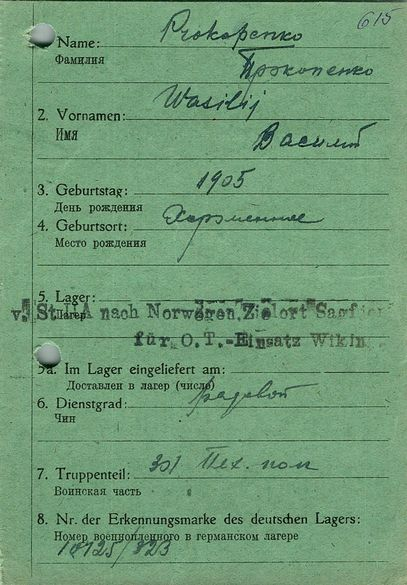 615
Name: Prokopenko
Фамилия Прокопенко
2. Vornamen: Wasilij
Имя Василий
3. Geburtstag: 1905
День рождения
4. Geburtsort:
Место рождения
5. Lager:
Лагерь
v. StIIA nach Norwegen, Zielort Sagfjor
für O.T.-Einsatz Wikin
5a. Im Lager eingeliefert am:
Доставлен в лагер (число)
6. Dienstgrad: рядовой
Чин
7. Truppenteil: 301 Пех. полк
Воинская часть
8. Nr. der Erkennungsmarke des deutschen Lagers:
Номер военнопленного в германском лагере
18125/82B